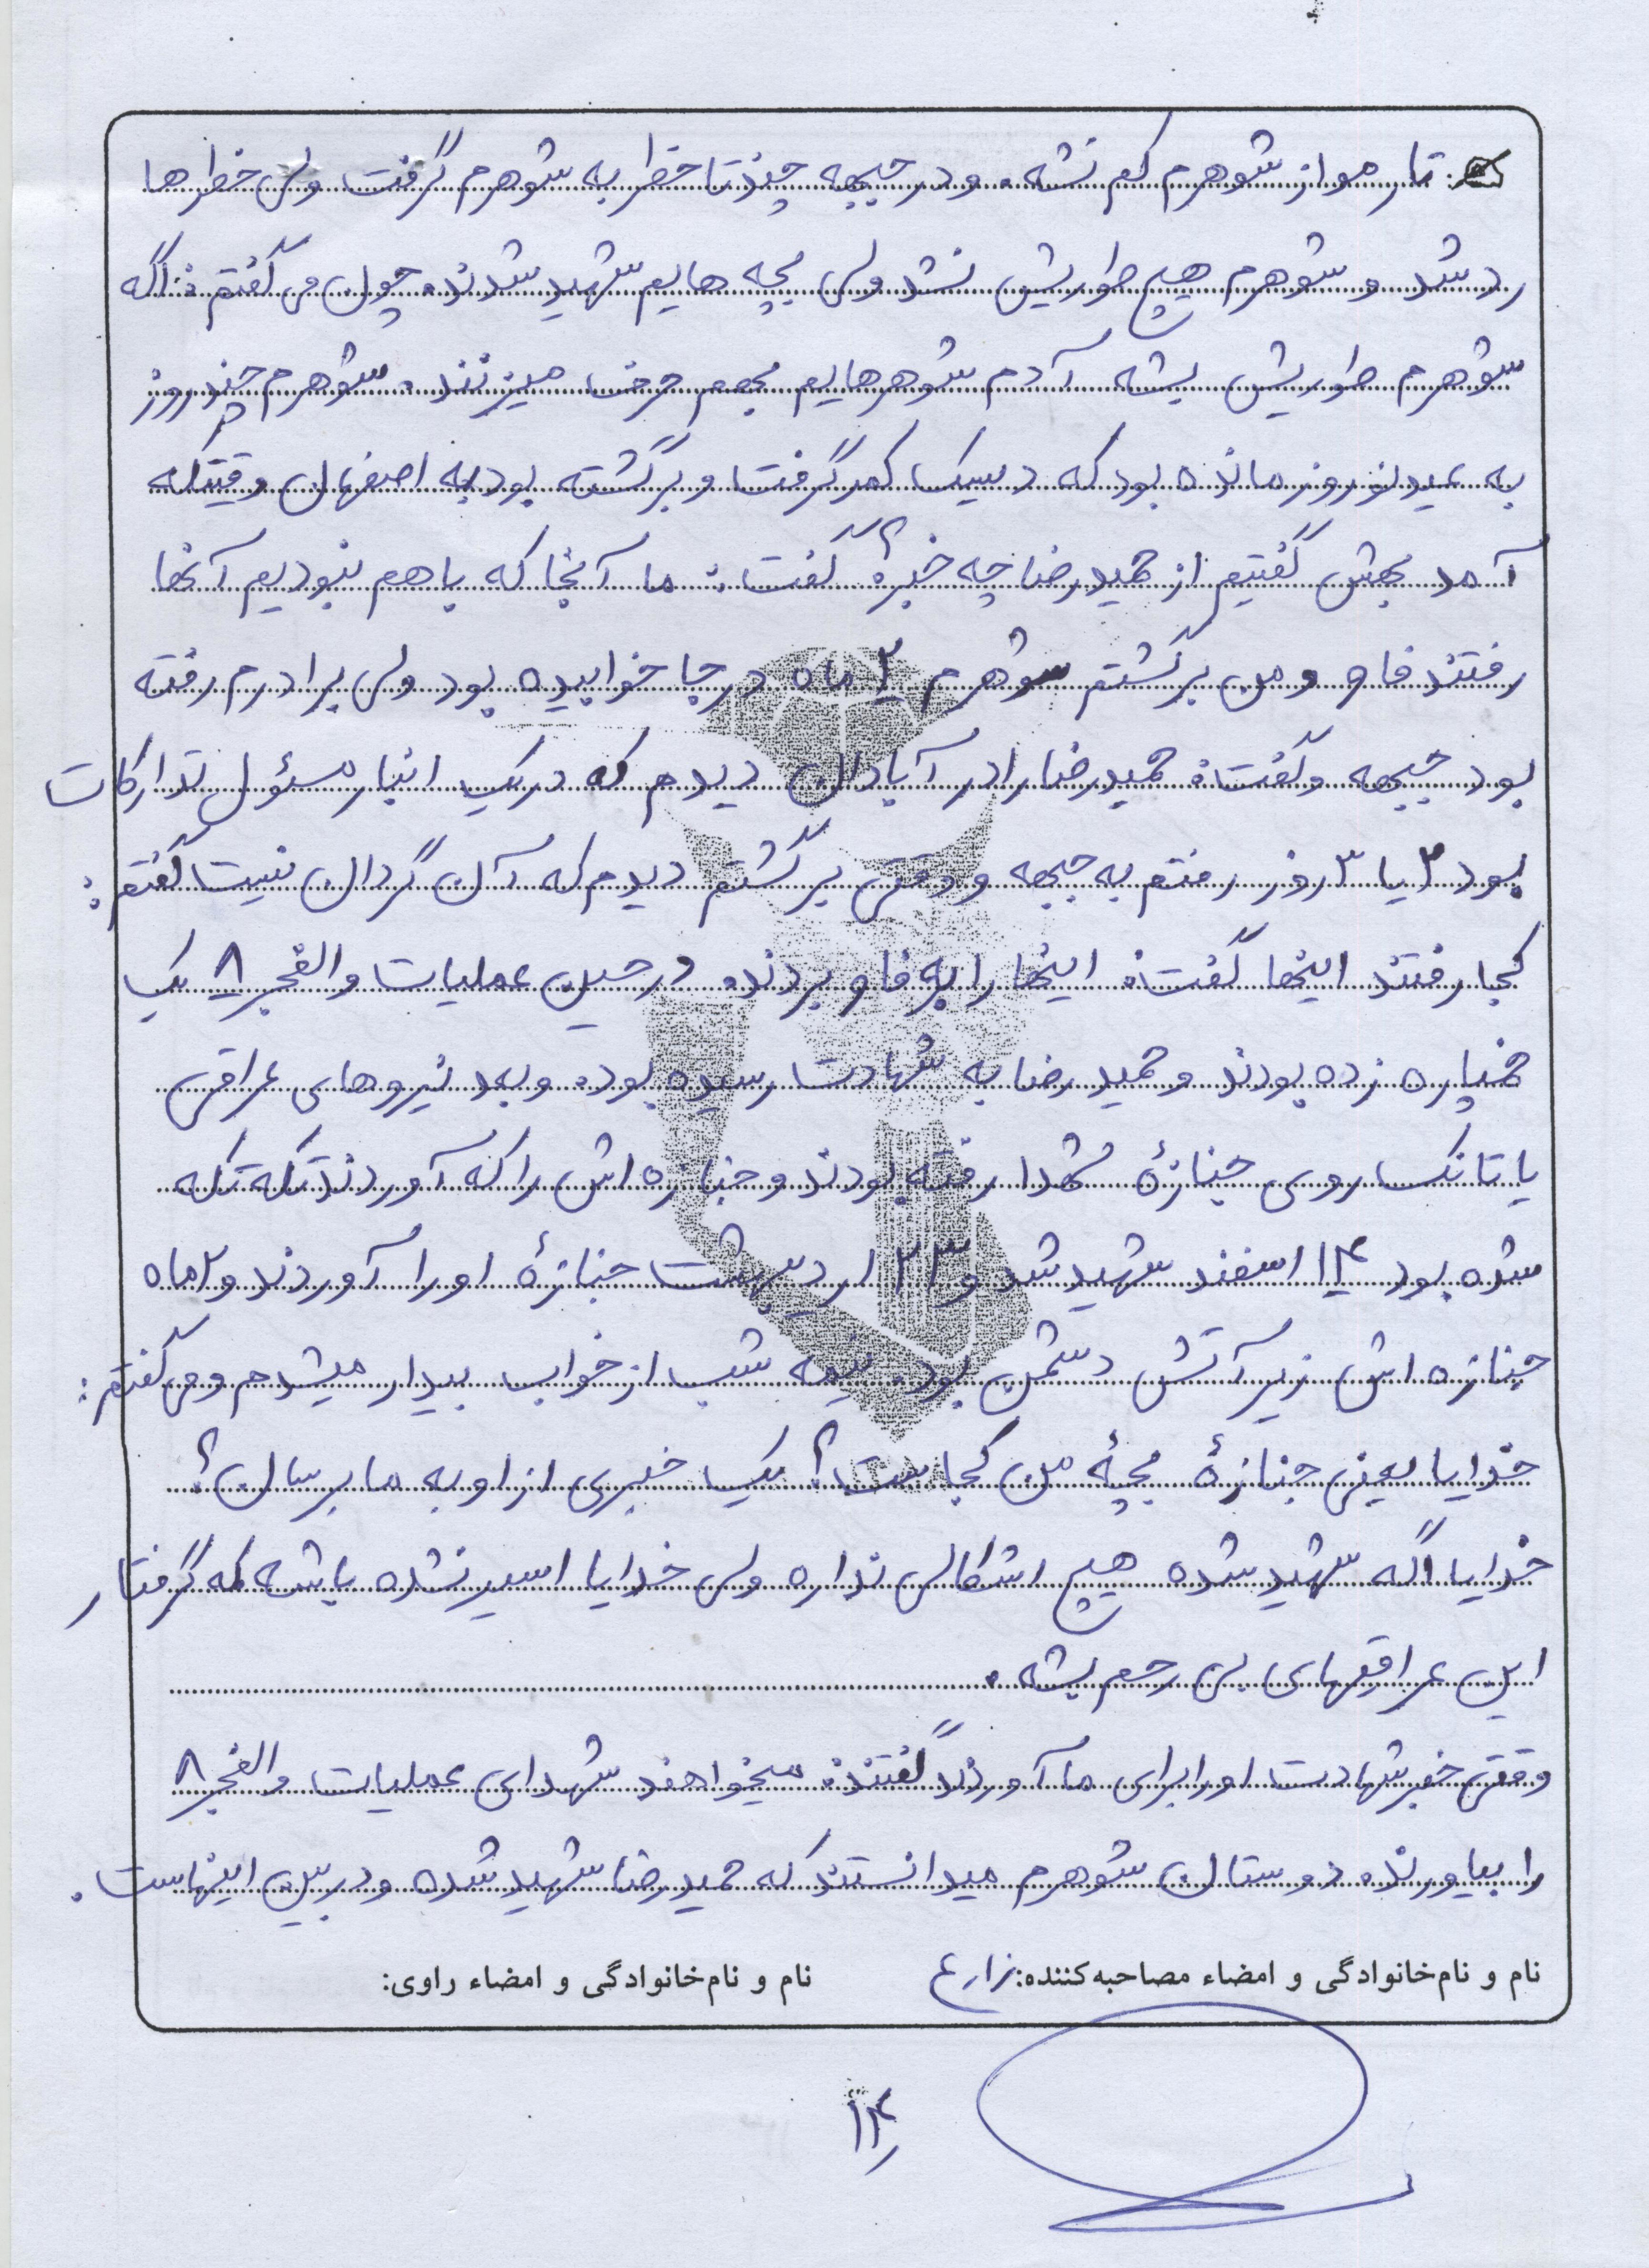 تار مو از شوهرم کم نشه. و در جبهه چندتا خطر به شوهرم گرفت ولی خطرها
رد شد و شوهرم هیچ طوریش نشد ولی بچه هایم شهید شدند. چون می گفتم: اگه
شوهرم طوریش بشه آدم شوهرهایم بهم حرف میزنند. شوهرم چند روز
به عید نوروز مانده بود که دسیک کمر گرفت و برگشته بود به اصفهان وقتیکه
آمد بهش گفتیم از حمیدرضا چه خبر؟ گفت: ما آنجا که با هم نبودیم آنها
رفتند فاو و من برگشتم شوهرم ۲ ماه در جا خوابیده بود ولی برادرم رفته
بود جبهه و گفت: حمیدرضا را در آبادان دیدم که در یک انبار مسئول تدارکات
بود ۲ یا ۳ روز رفتم به جبهه و وقتی برگشتم دیدم که آن گردان نیست گفتم:
کجا رفتند اینها گفت: اینها را به فاو بردند. در حین عملیات والفجر ۸ یک
خمپاره زده بودند و حمیدرضا به شهادت رسیده بود. و بعد نیروهای عراقی
با تانک روی جنازهٔ شهدا رفته بودند و جنازه اش را که آوردند تکه تکه
شده بود ۱۴ اسفند شهید شد و ۲۳ اردیبهشت جنازهٔ او را آوردند و ۲ ماه
جنازه اش زیر آتش دشمن بود. نیمه شب از خواب بیدار میشدم و می گفتم:
خدایا یعنی جنازهٔ بچهٔ من کجاست؟ یک خبری از او به ما برسان؟
خدایا اگه شهید شده هیچ اشکالی نداره ولی خدایا اسیر نشده باشه که گرفتار
این عراقیهای بی رحم بشه.
وقتی خبر شهادت او را برای ما آوردند گفتند: میخواهند شهدای عملیات والفجر ۸
را بیاورند. دوستان شوهرم میدانستند که حمیدرضا شهید شده و در بین اینهاست.
نام و نام خانوادگی و امضاء مصاحبه کننده: زارع نام و نام خانوادگی و امضاء راوی:
۱۴